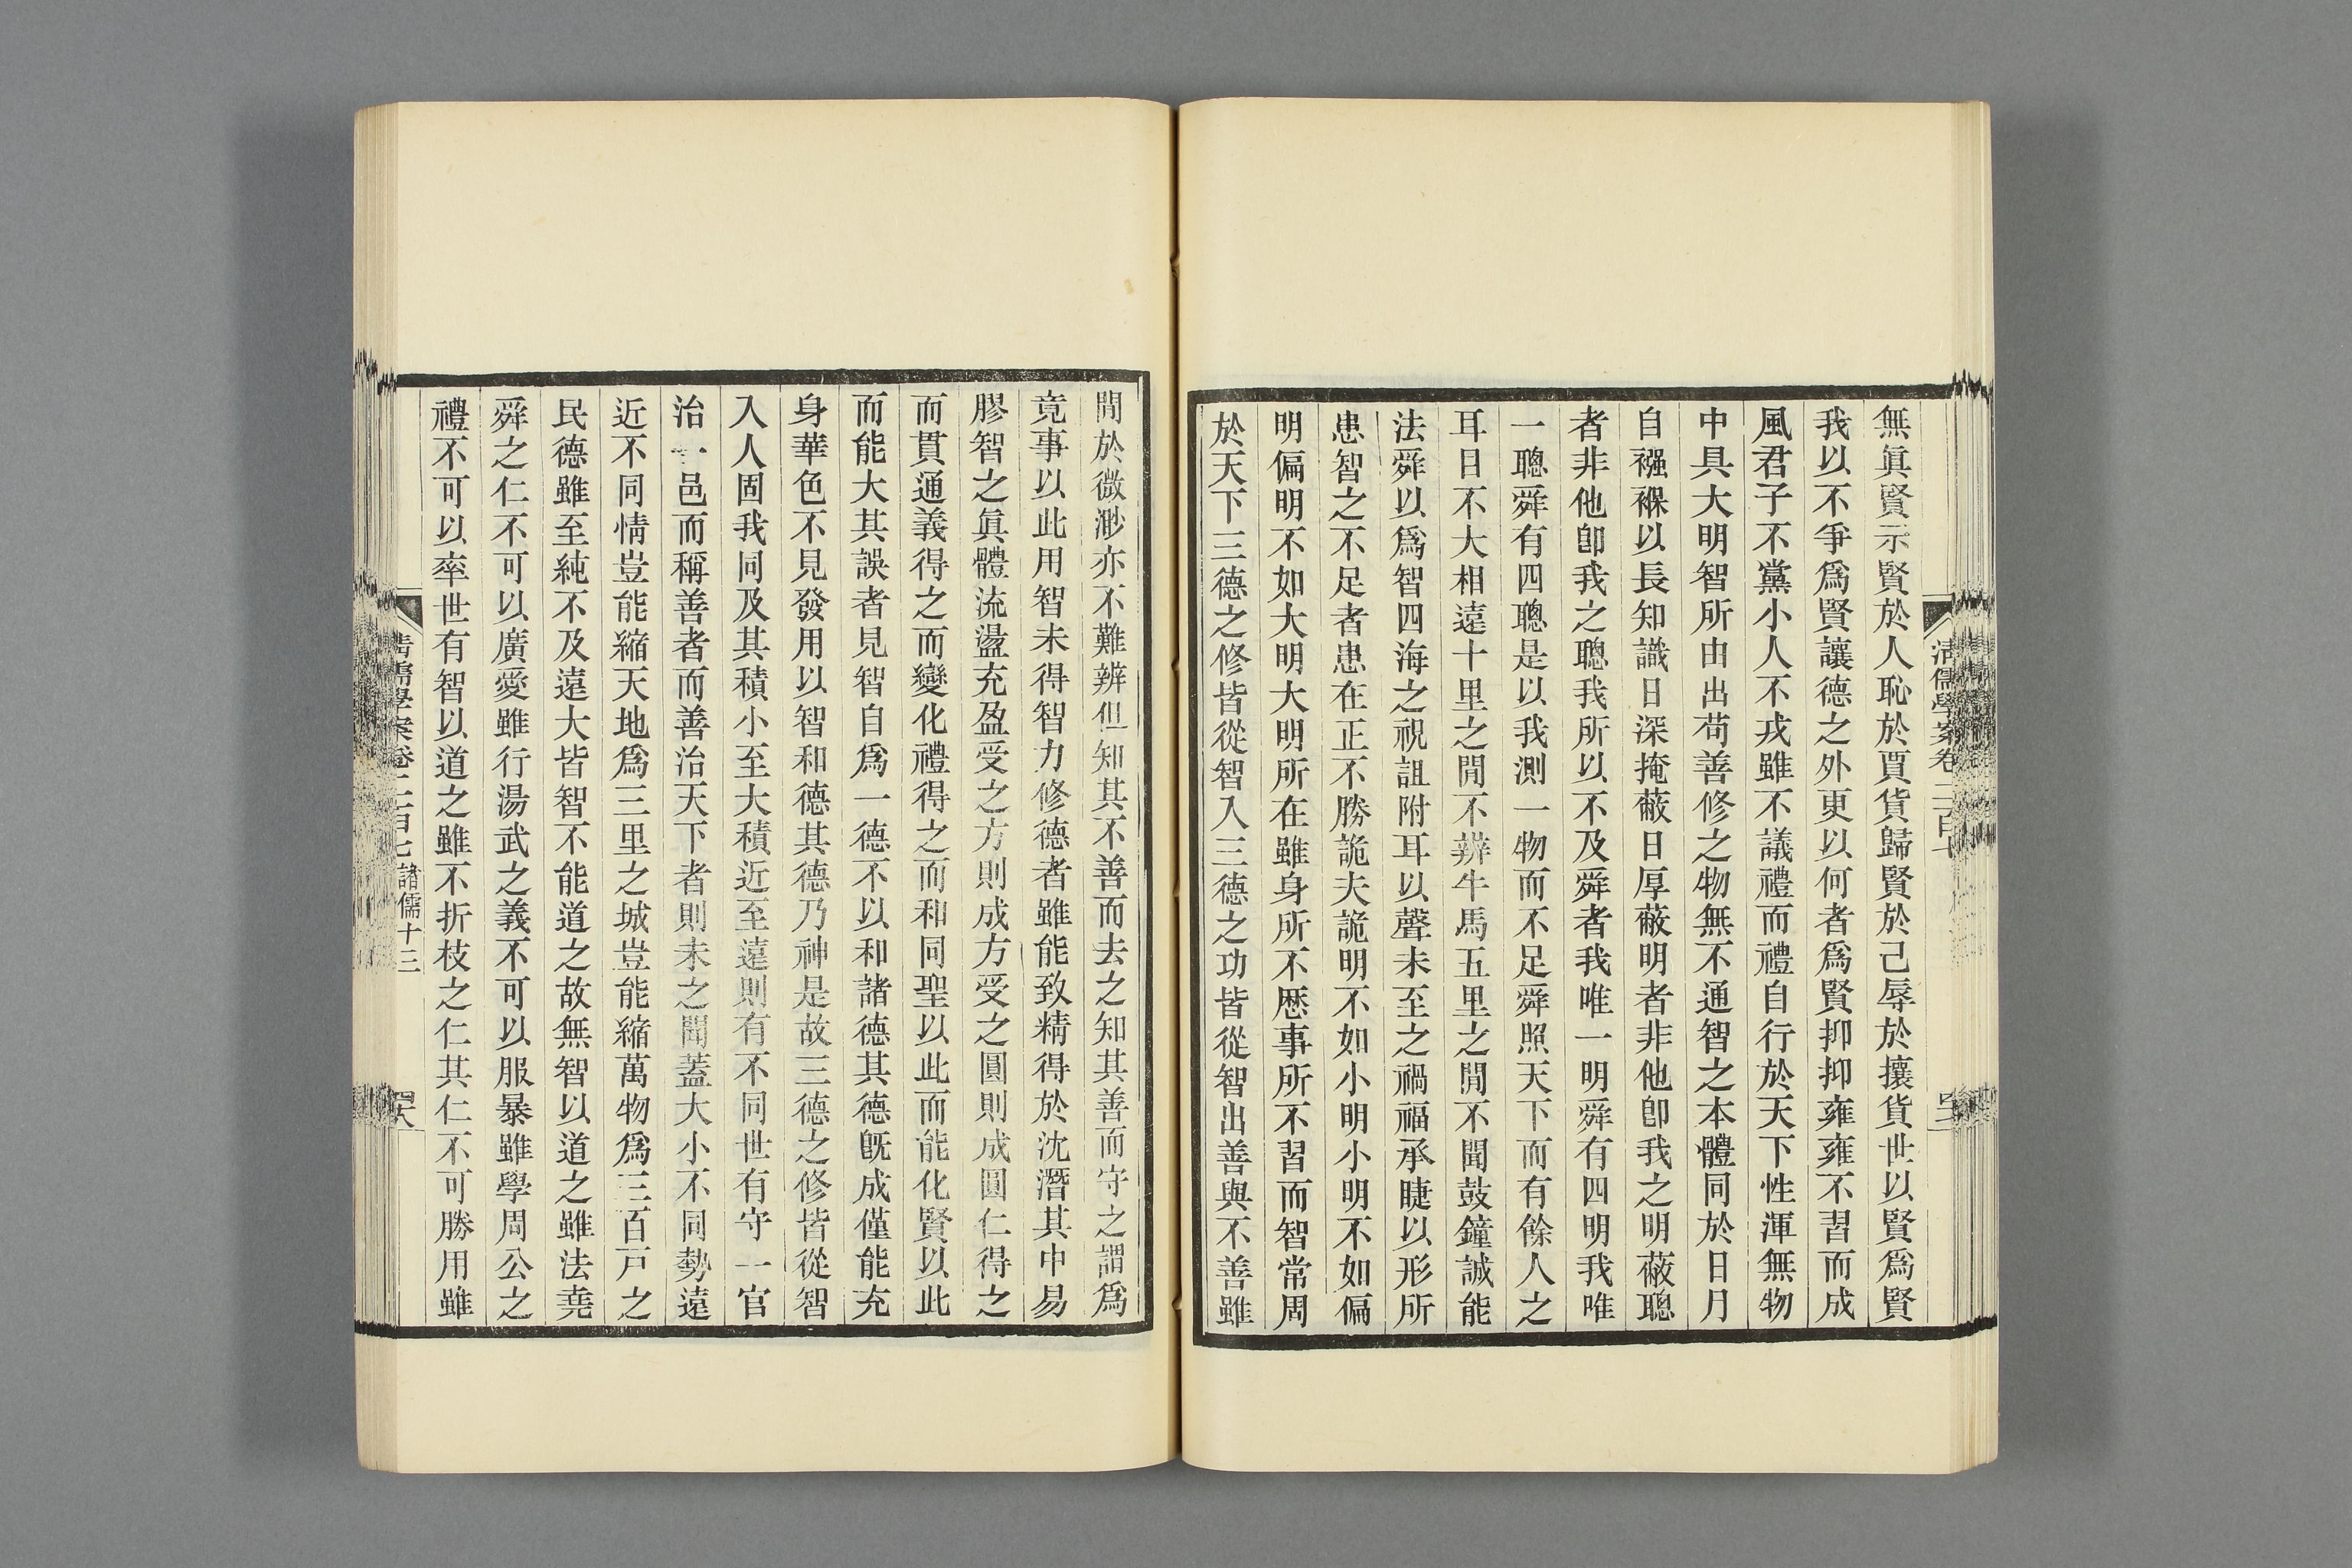 無眞賢示賢於人恥於賈貨歸賢於己辱於攘貨世以賢爲賢
我以不爭爲賢讓德之外更以何者爲賢抑抑雍雍不習而成
風君子不黨小人不戎雖不議禮而禮自行於天下性渾無物
中具大明智所由出苟善修之物無不通智之本體同於日月
自襁褓以長知識日深掩蔽日厚蔽明者非他卽我之明蔽聰
者非他卽我之聰我所以不及舜者我唯一明舜有四明我唯
一聰舜有四聰是以我測一物而不足舜照天下而有餘人之
耳目不大相遠十里之閒不辨牛馬五里之閒不聞鼓鐘誠能
法舜以爲智四海之視詛附耳以聲未至之禍福承睫以形所
患智之不足者患在正不勝詭夫詭明不如小明小明不如偏
明偏明不如大明大明所在雖身所不歷事所不習而智常周
於天下三德之修皆從智入三德之功皆從智出善與不善雖
清儒學案卷二百七
閒於微渺亦不難辨但知其不善而去之知其善而守之謂爲
竟事以此用智未得智力修德者雖能致精得於沈潛其中易
膠智之眞體流盪充盈受之方則成方受之圓則成圓仁得之
而貫通義得之而變化禮得之而和同聖以此而能化賢以此
而能大其誤者見智自爲一德不以和諸德其德旣成僅能充
身華色不見發用以智和德其德乃神是故三德之修皆從智
入人固我同及其積小至大積近至遠則有不同世有守一官
治一邑而稱善者而善治天下者則未之聞蓋大小不同勢遠
近不同情豈能縮天地爲三里之城豈能縮萬物爲三百戸之
民德雖至純不及遠大皆智不能道之故無智以道之雖法堯
舜之仁不可以廣愛雖行湯武之義不可以服暴雖學周公之
禮不可以率世有智以道之雖不折枝之仁其仁不可勝用雖
清儒學案卷二百七 諸儒十三